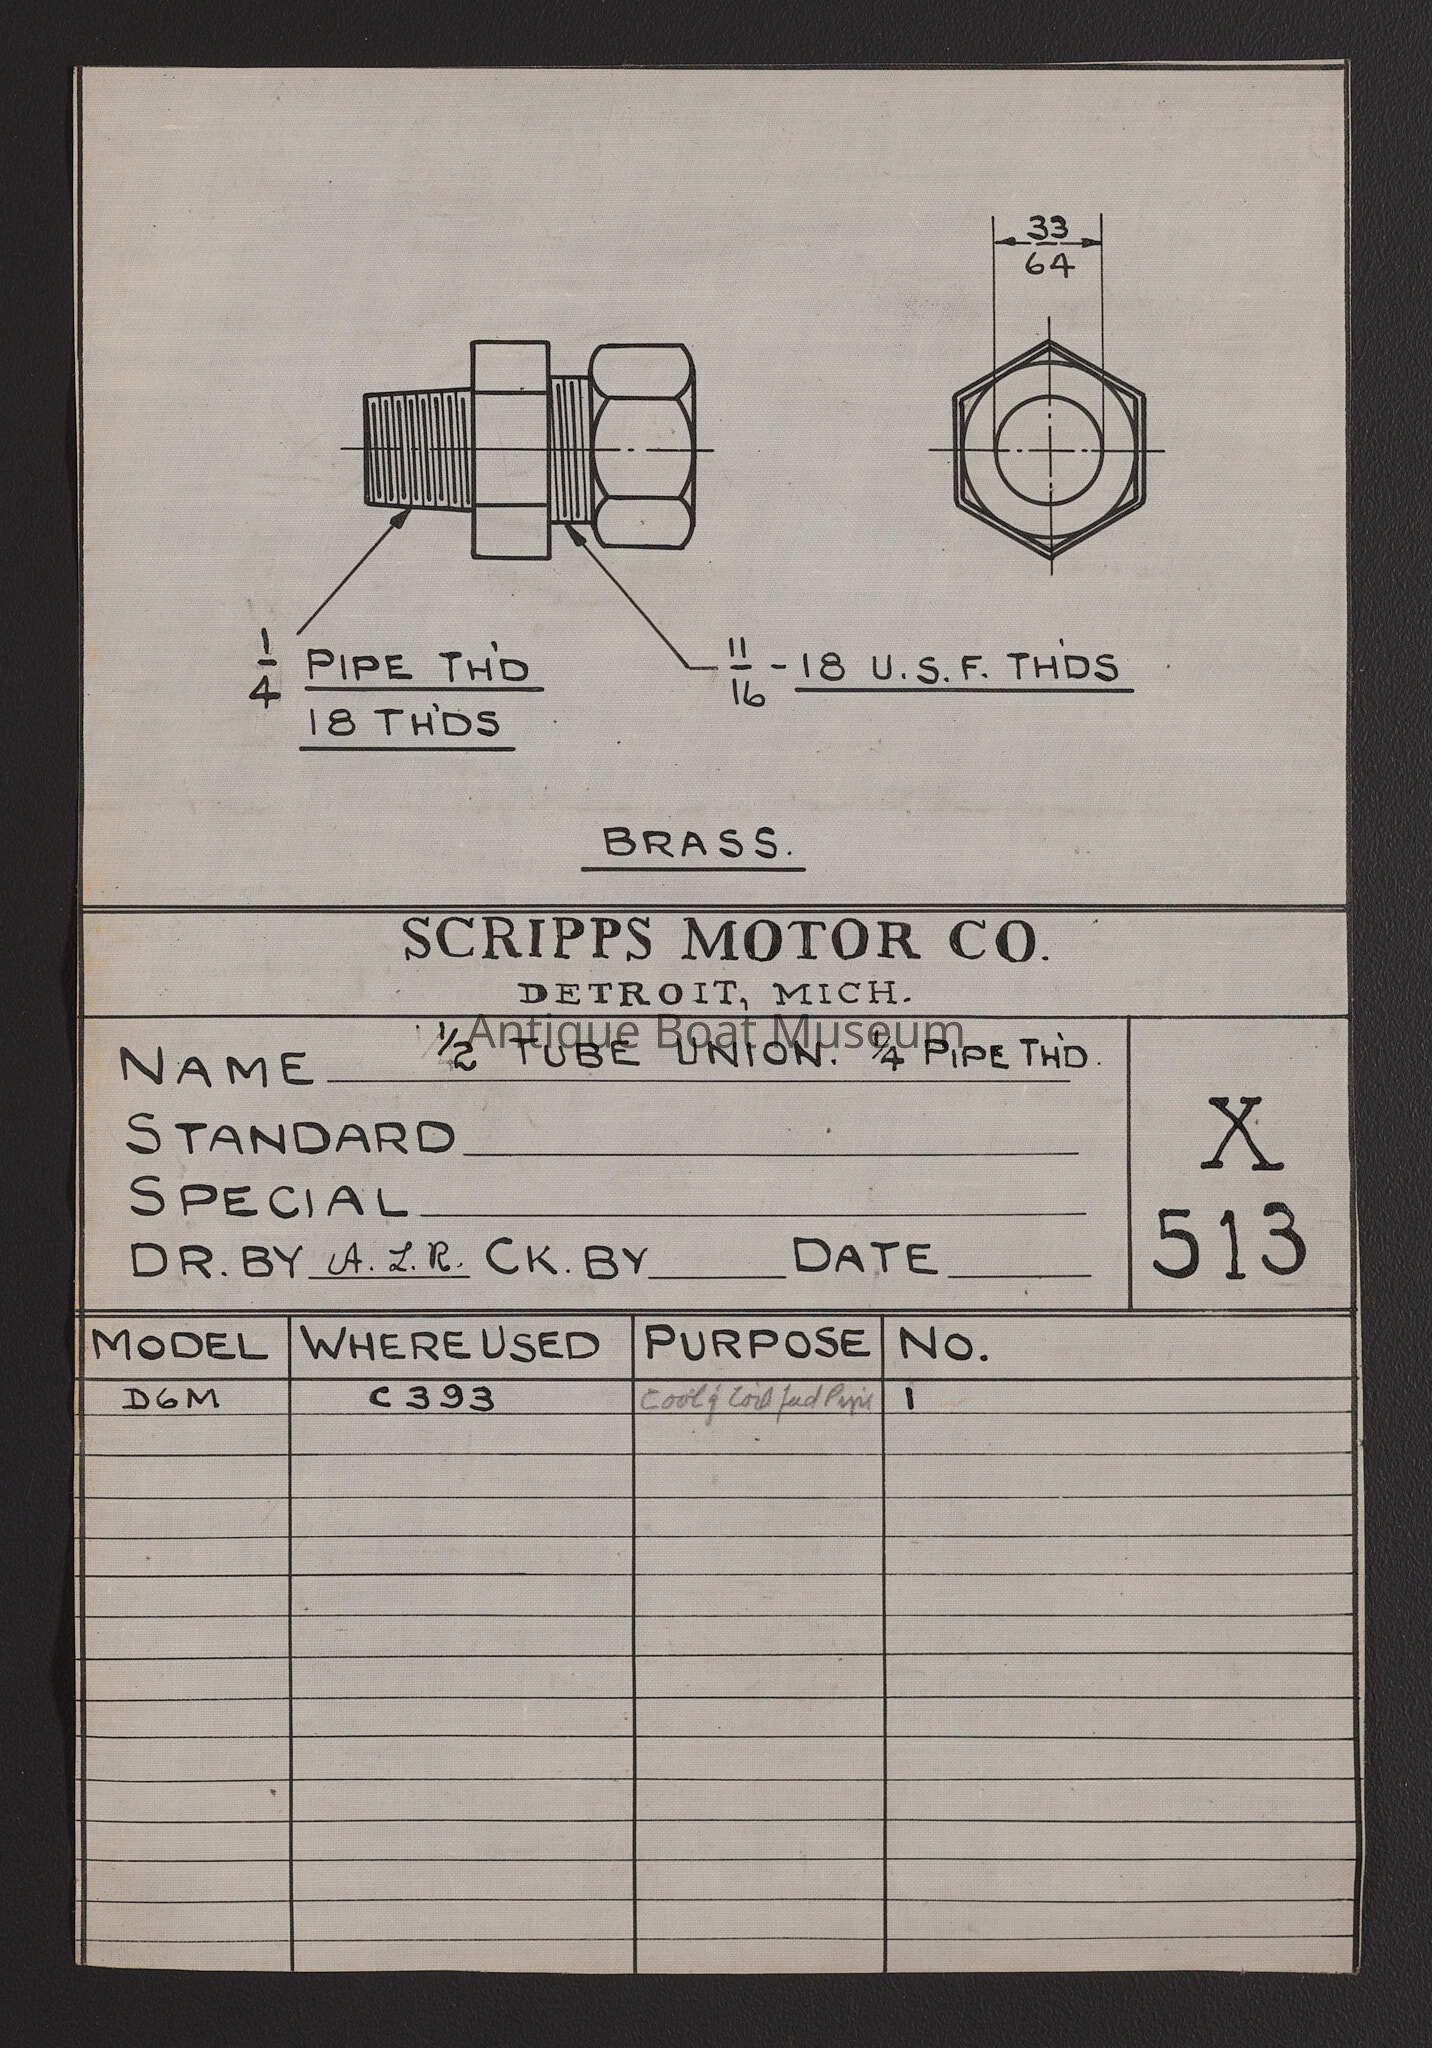 33
64
1/4 PIPE TH'D
18 TH'DS
11/16 - 18 U.S.F. TH'DS
BRASS.
SCRIPPS MOTOR CO.
DETROIT, MICH.
Antique Boat Museum
NAME 1/2 TUBE UNION. 1/4 PIPE TH'D.
STANDARD
SPECIAL
DR. BY A. L. R. CK. BY DATE
X
513
MODEL WHERE USED PURPOSE NO.
D6M C393 1